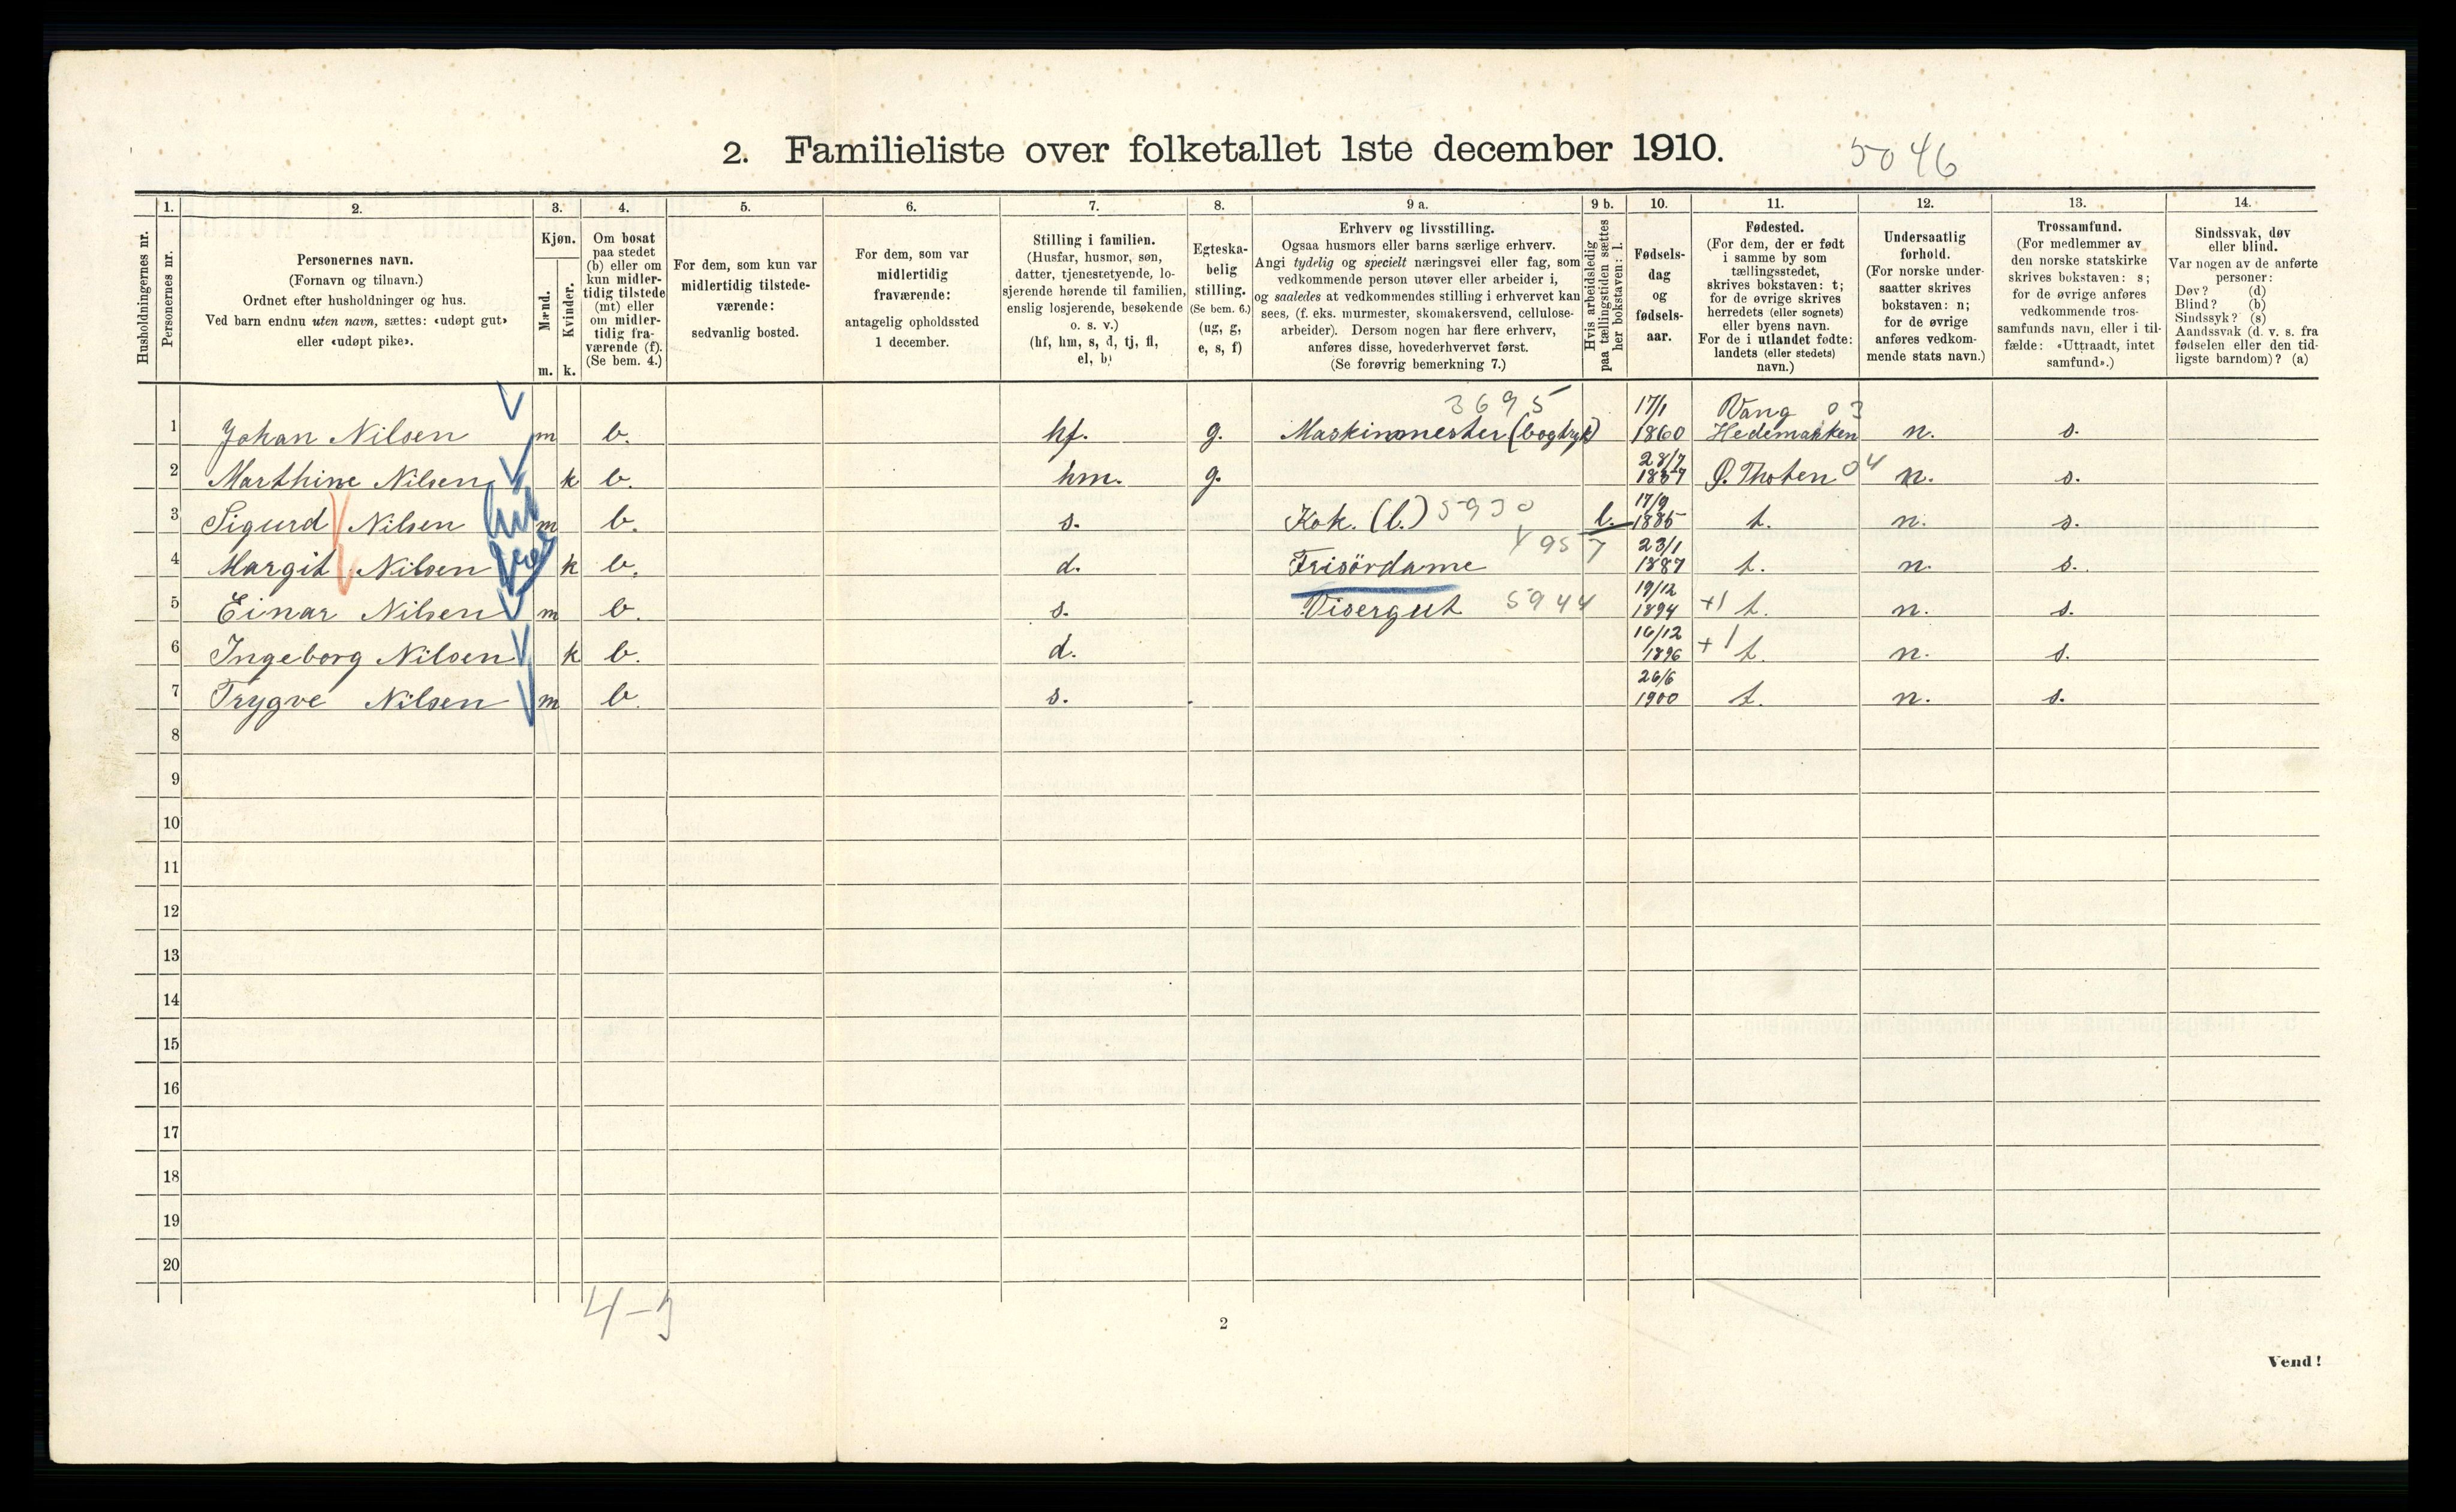 2. Familieliste over folketallet 1ste december 1910.
5046
Husholdningernes nr.
1.
Personernes nr.
2.
Personernes navn.
(Fornavn og tilnavn.)
Ordnet efter husholdninger og hus.
Ved barn endnu uten navn, sættes: «udøpt gut»
eller «udøpt pike».
3.
Kjøn.
Mænd.
Kvinder.
m. k.
4.
Om bosat
paa stedet
(b) eller om
kun midler-
tidig tilstede
(mt) eller
om midler-
tidig fra-
værende (f).
(Se bem. 4.)
5.
For dem, som kun var
midlertidig tilstede-
værende:
sedvanlig bosted.
6.
For dem, som var
midlertidig
fraværende:
antagelig opholdssted
1 december.
7.
Stilling i familien.
(Husfar, husmor, søn,
datter, tjenestetyende, lo-
sjerende hørende til familien,
enslig losjerende, besøkende
o. s. v.)
(hf, hm, s, d, tj, fl,
el, b)
8.
Egteska-
belig
stilling.
(Se bem. 6.)
(ug, g,
e, s, f)
9 a.
Erhverv og livsstilling.
Ogsaa husmors eller barns særlige erhverv.
Angi tydelig og specielt næringsvei eller fag, som
vedkommende person utøver eller arbeider i,
og saaledes at vedkommendes stilling i erhvervet kan
sees, (f. eks. murmester, skomakersvend, cellulose-
arbeider). Dersom nogen har flere erhverv,
anføres disse, hovederhvervet først.
(Se forøvrig bemerkning 7.)
9 b.
Hvis arbeidsledig
paa tællingstiden sættes
her bokstaven: l.
10.
Fødsels-
dag
og
fødsels-
aar.
11.
Fødested.
(For dem, der er født
i samme by som
tællingsstedet,
skrives bokstaven: t;
for de øvrige skrives
herredets (eller sognets)
eller byens navn.
For de i utlandet fødte:
landets (eller stedets)
navn.)
12.
Undersaatlig
forhold.
(For norske under-
saatter skrives
bokstaven: n;
for de øvrige
anføres vedkom-
mende stats navn.)
13.
Trossamfund.
(For medlemmer av
den norske statskirke
skrives bokstaven: s;
for de øvrige anføres
vedkommende tros-
samfunds navn, eller i til-
fælde: «Uttraadt, intet
samfund».)
14.
Sindssvak, døv
eller blind.
Var nogen av de anførte
personer:
Døv? (d)
Blind? (b)
Sindssyk? (s)
Aandssvak (d. v. s. fra
fødselen eller den tid-
ligste barndom)? (a)
3695 17/1 Vang 03
1 Johan Nilsen m b. hf. g. Maskinmester (bogtryk) 1860 Hedemarken n. s.
28/7
2 Marthine Nilsen k b. hm. g. Ø. Thoten 04 n. s.
17/9
3 Sigurd Nilsen m b. s. Kok. (l.) 5930 l. 1885 t. n. s.
957 23/1
4 Margit Nilsen k b. d. Frisördame 1887 t. n. s.
19/12
5 Einar Nilsen m b. s. Visergut 5944 1894 +1 t. n. s.
16/12
6 Ingeborg Nilsen k b. d. 1896 +1 t. n. s.
26/6
7 Trygve Nilsen m b. s. 1900 t. n. s.
8
9
10
11
12
13
14
15
16
17
18
19
20
4-3
2
Vend!